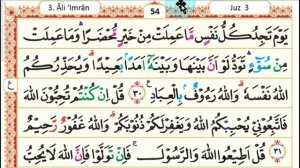 3. Āli 'Imrân 54 Juz 3
يَوْمَ تَجِدُ كُلُّ نَفْسٍ مَّا عَمِلَتْ مِنْ خَيْرٍ مُّحْضَرًا وَمَا عَمِلَتْ
مِنْ سُوْٓءٍ تَوَدُّ لَوْ اَنَّ بَيْنَهَا وَبَيْنَهٗٓ اَمَدًاۢ بَعِيْدًا وَيُحَذِّرُكُمُ
اللّٰهُ نَفْسَهٗ وَاللّٰهُ رَءُوْفٌۢ بِالْعِبَادِ ٣٠ قُلْ اِنْ كُنْتُمْ تُحِبُّوْنَ اللّٰهَ
فَاتَّبِعُوْنِيْ يُحْبِبْكُمُ اللّٰهُ وَيَغْفِرْ لَكُمْ ذُنُوْبَكُمْ وَاللّٰهُ غَفُوْرٌ رَّحِيْمٌ
٣١ قُلْ اَطِيْعُوا اللّٰهَ وَالرَّسُوْلَ فَاِنْ تَوَلَّوْا فَاِنَّ اللّٰهَ لَا يُحِبُّ